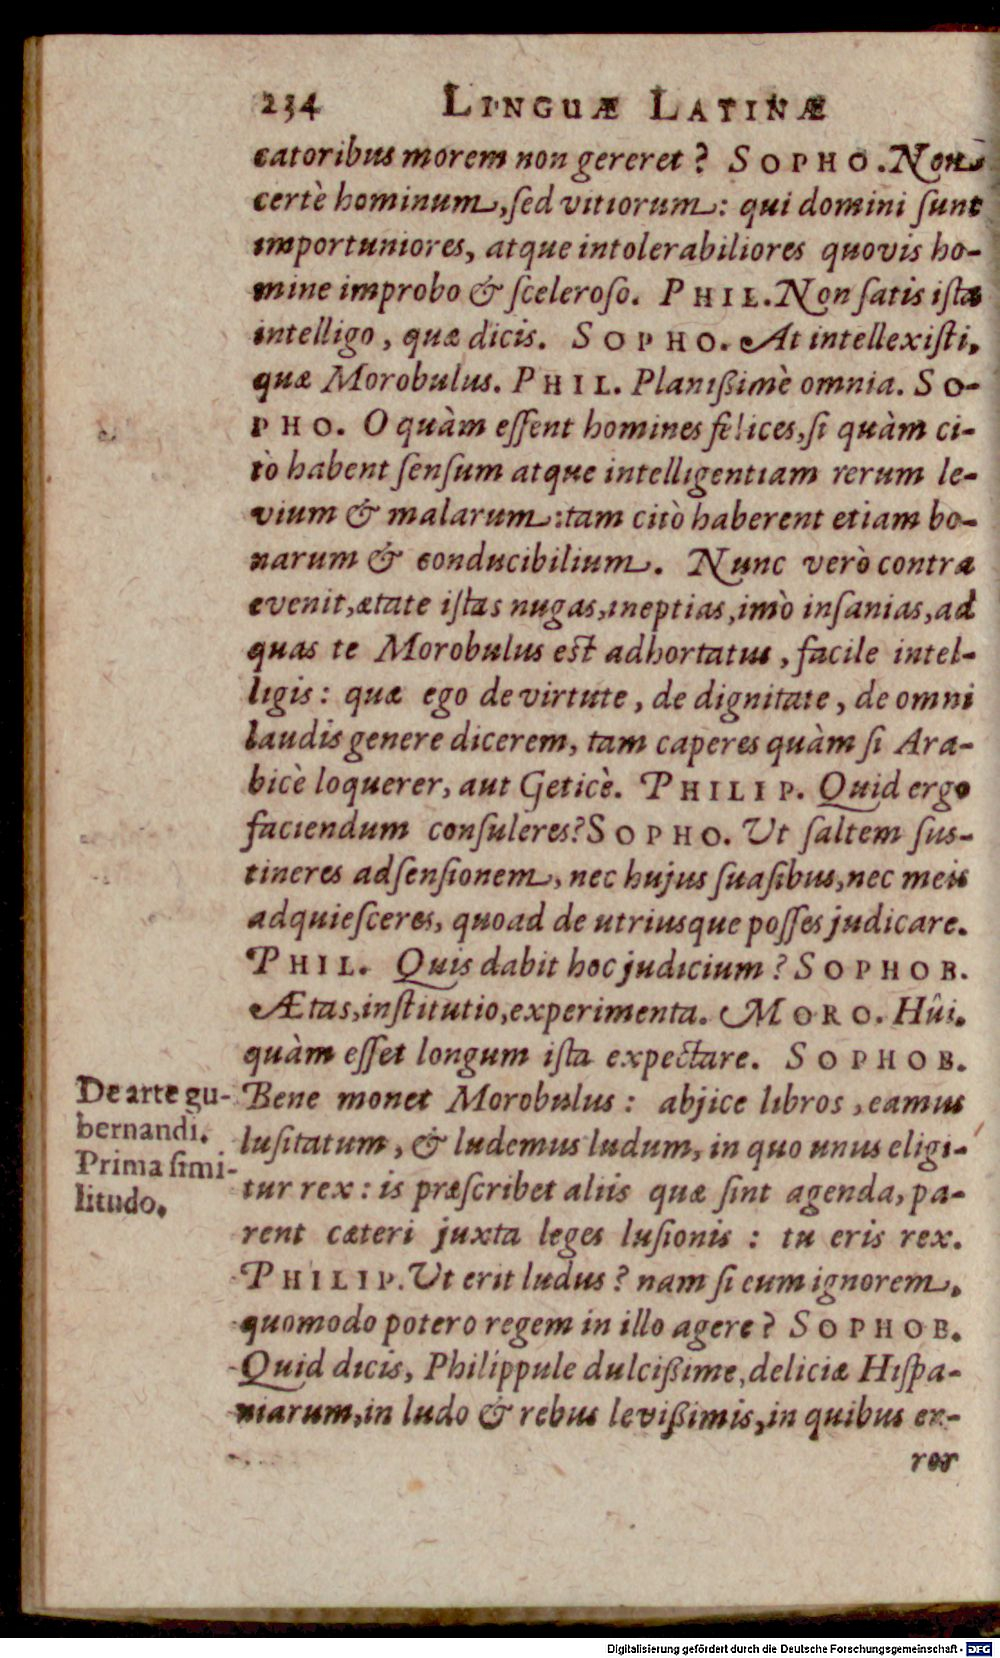 234 LINGUÆ LATINÆ
catoribus morem non gereret? SOPHO. Non
certè hominum, sed vitiorum: qui domini sunt
importuniores, atque intolerabiliores quovis ho-
mine improbo & sceleroso. PHIL. Non satis ista
intelligo, quæ dicis. SOPHO. At intellexisti,
quæ Morobulus. PHIL. Planißimè omnia. SO-
PHO. O quàm essent homines felices, si quàm ci-
tò habent sensum atque intelligentiam rerum le-
vium & malarum: tam citò haberent etiam bo-
narum & conducibilium. Nunc verò contra
evenit, ætate istas nugas, ineptias, imò insanias, ad
quas te Morobulus est adhortatus, facile intel-
ligis: quæ ego de virtute, de dignitate, de omni
laudis genere dicerem, tam caperes quàm si Ara-
bicè loquerer, aut Geticè. PHILIP. Quid ergo
faciendum consuleres? SOPHO. Ut saltem sus-
tineres adsensionem, nec hujus suasibus, nec meis
adquiesceres, quoad de utriusque posses judicare.
PHIL. Quis dabit hoc judicium? SOPHOB.
Ætas, institutio, experimenta. MORO. Hûi.
quàm esset longum ista expectare. SOPHOB.
Bene monet Morobulus: abjice libros, eamus
lusitatum, & ludemus ludum, in quo unus eligi-
tur rex: is præscribet aliis quæ sint agenda, pa-
rent cæteri juxta leges lusionis: tu eris rex.
PHILIP. Ut erit ludus? nam si eum ignorem,
quomodo potero regem in illo agere? SOPHOB.
Quid dicis, Philippule dulcißime, deliciæ Hispa-
niarum, in ludo & rebus levißimis, in quibus er-
ror
De arte gu-
bernandi.
Prima simi-
litudo.
Digitalisierung gefördert durch die Deutsche Forschungsgemeinschaft - DFG